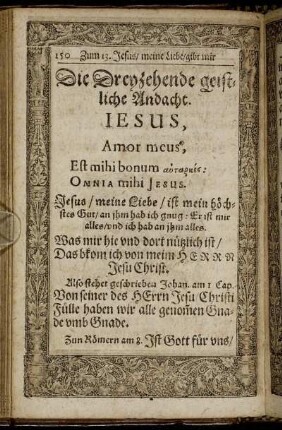 150 Zum 13. Jesus/ meine Liebe/gibt mir
Die Dreyzehende geist-
liche Andacht.
IESUS,
Amor meus,
Est mihi bonum αὐταρκὲς:
OMNIA mihi JESUS.
Jesus/ meine Liebe/ ist mein höch-
stes Gut/ an jhm hab ich gnug: Er ist mir
alles/vnd ich hab an jhm alles.
Was mir hie vnd dort nützlich ist/
Das bkom ich von meim HERRN
Jesu Christ.
Also stehet geschrieben Johan. am 1 Cap.
Von seiner des HErrn Jesu Christi
Fülle haben wir alle genom̄en Gna-
de vmb Gnade.
Zun Römern am 8. Ist Gott für vns/